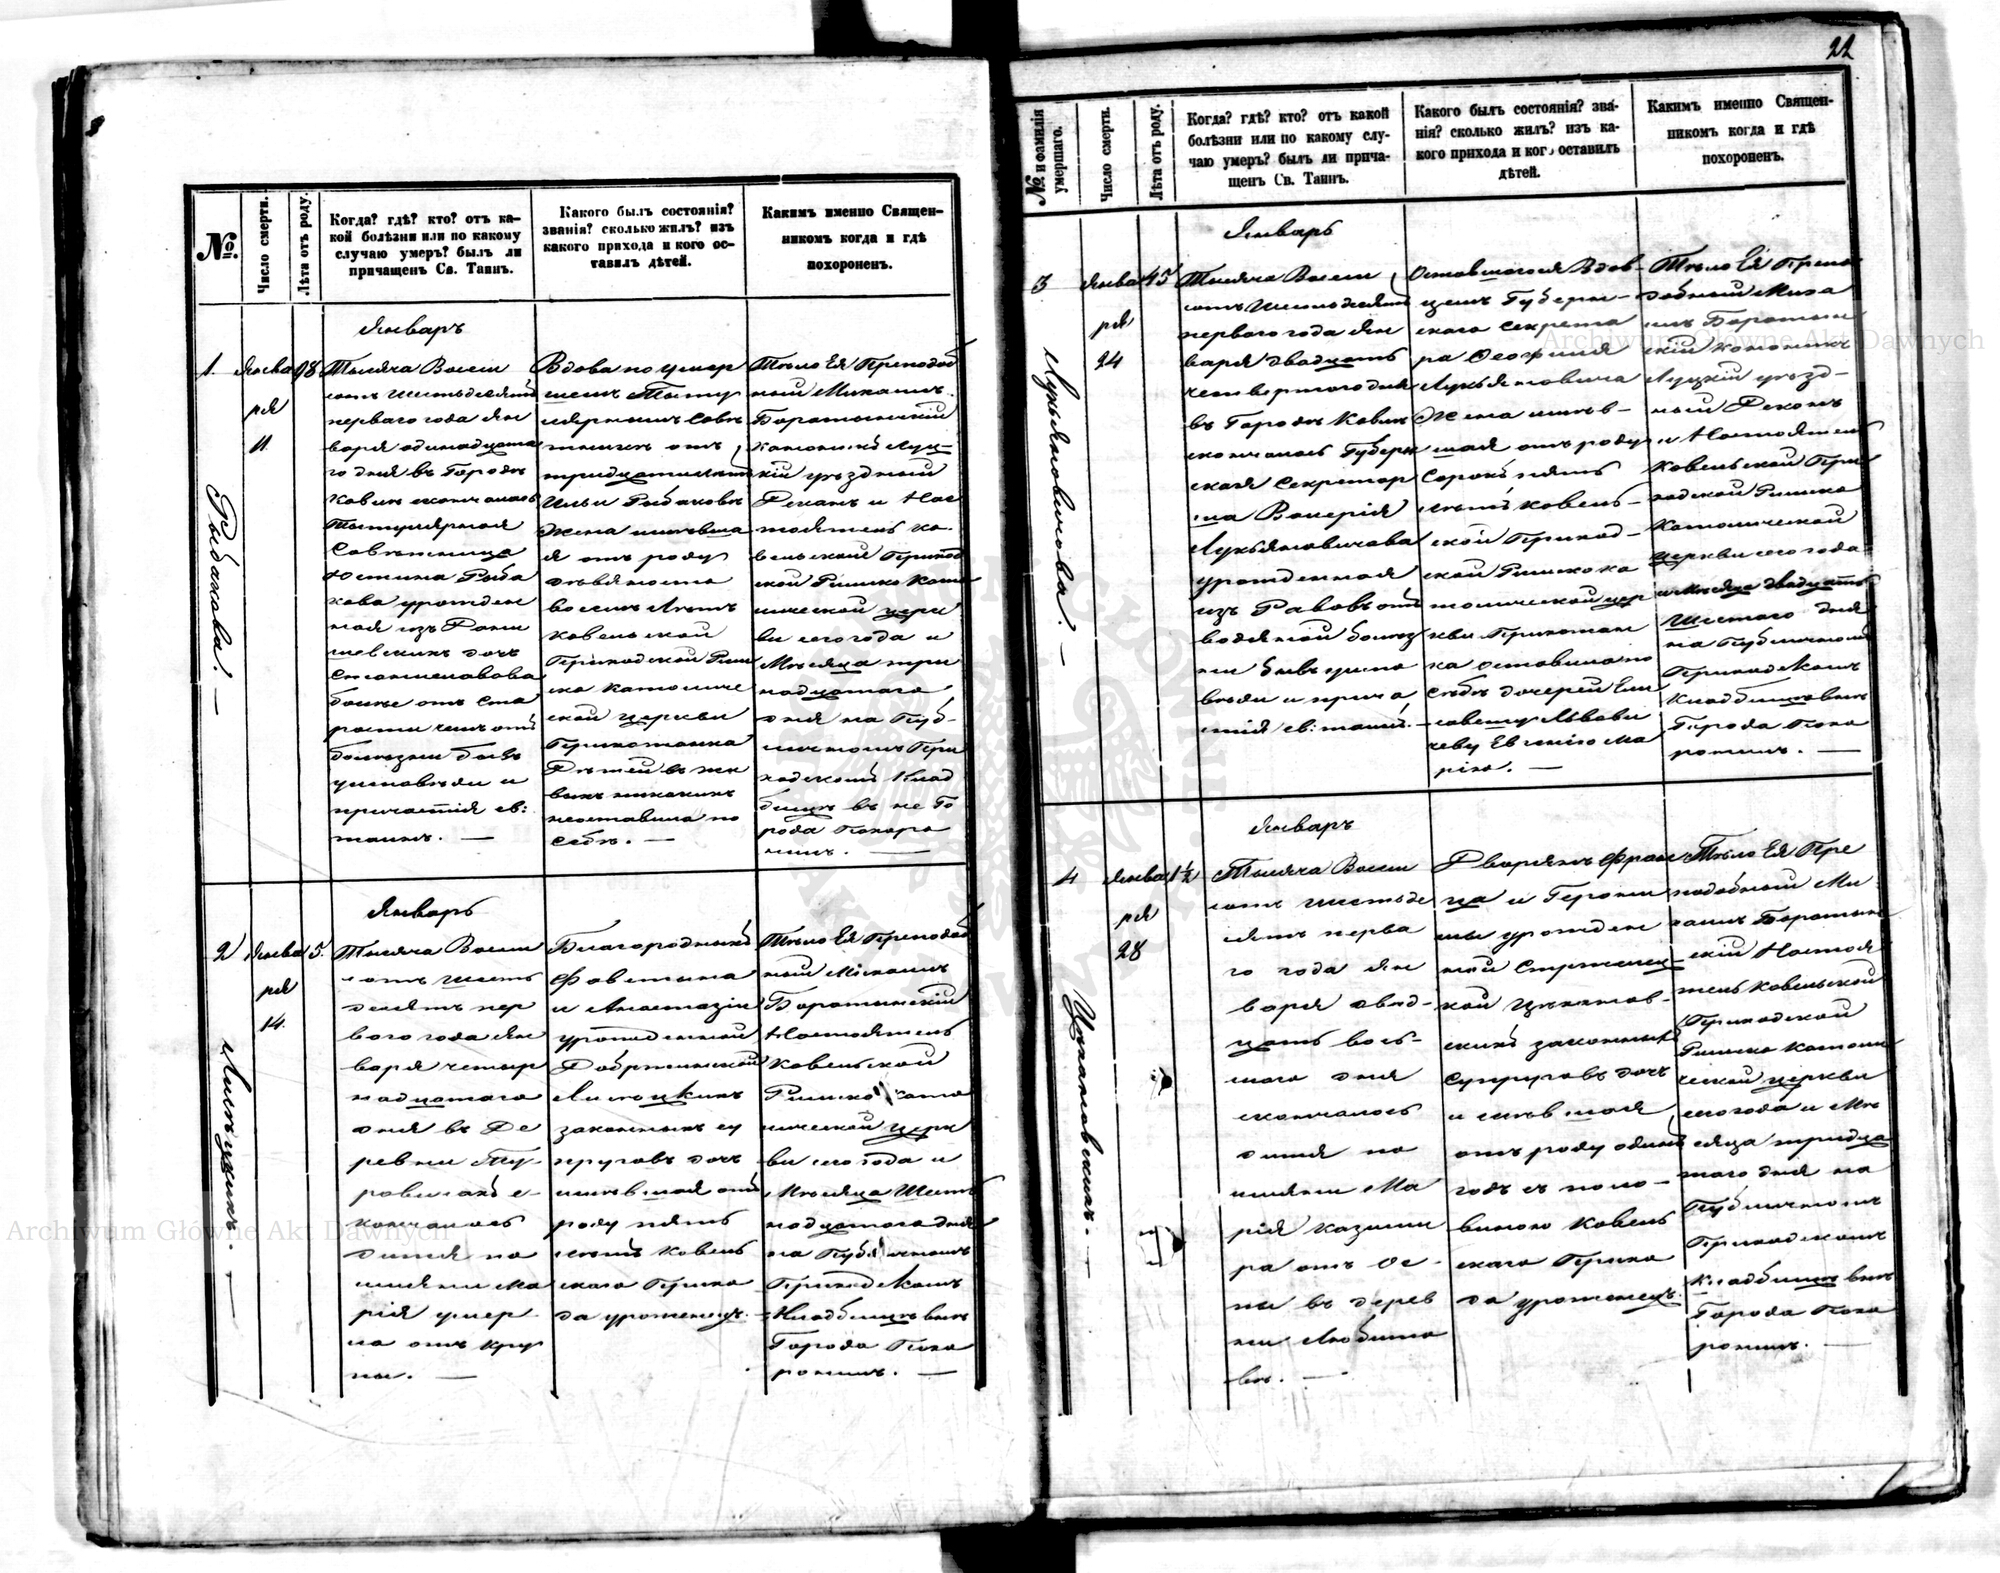 22
№.
Число смерти.
Лѣта отъ роду.
Когда? гдѣ? кто? отъ ка-
кой болѣзни или по какому
случаю умеръ? былъ ли
причащенъ Св. Таинъ.
Какого былъ состоянія?
званія? сколько жилъ? изъ
какого прихода и кого ос-
тавилъ дѣтей.
Какимъ именно Священ-
никомъ когда и гдѣ
похороненъ.
1.
Рыбакова. —
Янва
ря
11.
98
Январь
Тысяча Восем
сотъ шестьдесятъ
перваго года Ян
варя одинадцата
го дня въ Городѣ
Ковлѣ скончалась
Титулярная
Совѣтница
Юстина Рыба
кова урожден
ная изъ
дочь
Станиславова
болѣе отъ ста
рости чемъ отъ
болѣзни бывъ
исповѣди и
причастія св:
таинъ. —
Вдова по умер
шемъ Титу
лярномъ Совѣ
тникѣ отъ
тридцатилѣтъ
Ильи Рыбаковѣ
Жена имѣвша
я отъ роду
девяносто
восемъ лѣтъ
Ковельской
Приходской Рим
ско Католиче
ской церкви
Прихожанка
Дѣтей въ жи
выхъ никакихъ
неоставила по
себѣ. —
Тѣло Ея Преподоб
ный Михаилъ
Боратынскій
Каноникъ Луц-
кій уѣздный
Деканъ и Нас
тоятель Ко-
вельской Приход
ской Римско Като
лической церк
ви сего года и
Мѣсяца три
надцатаго
дня на Пуб-
личномъ При
ходскомъ Клад
бищѣ въ не Го
рода Похоро
нилъ. —
2
Янва
ря
14.
5.
Январь
Тысяча Восем
сотъ шесть
десятъ пер
ваго года Ян
варя четыр
надцатаго
дня въ Де
ревни Ту-
ровичахъ с-
кончалось
дитя по
имяни Ма
рія умер-
ла отъ кру
пы. —
Благородныхъ
Фаветина
и Анастазіи
урожденной
Добртынской
законныхъ су
пруговъ дочь
имѣвшая отъ
роду пять
лѣтъ Ковель
скаго Прихо
да уроженецъ. —
Тѣло Ея Преподоб
ный Михаилъ
Боратынскій
Настоятель
Ковельской
Римско Като
лической церк
ви сего года и
Мѣсяца Шест
надцатаго дня
на Публичномъ
Приходскомъ
Кладбищѣ внѣ
Города Похо
ронилъ. —
№ и фамилія
умершаго.
Число смерти.
Лѣта отъ роду.
Когда? гдѣ? кто? отъ какой
болѣзни или по какому слу-
чаю умеръ? былъ ли прича-
щенъ Св. Таинъ.
Какого былъ состоянія? зва-
нія? сколько жилъ? изъ ка-
кого прихода и кого оставилъ
дѣтей.
Какимъ именно Священ-
никомъ когда и гдѣ
похороненъ.
3
Лукьяновичова. —
Янва
ря
24
45
Январь
Тысяча Восем
сотъ Шестьдесятъ
перваго года Ян
варя двадцать
четвертаго дня
въ Городѣ Ковлѣ
скончалась Губерн
ская Секретар
ша Валерія
Лукьяновичова
урожденная
изъ Раковъ отъ
водяной болѣз
ни бывъ испо
вѣди и прича
стія св: таинъ. —
Оставшагося Вдов-
цемъ Губерн-
скаго Секрета
ра Осафина
Лукьяновича
Жена имѣв-
шая отъ роду
Сорокъ пять
лѣтъ Ковель-
ской Приход-
ской Римско ка
толической цер
кви Прихожан
ка оставила по
себѣ дочерей Ели
савету
Евгенію Ма
рію. —
Тѣло Ея Препо
добный Миха
илъ Боратын
скій Каноникъ
Луцкій уѣзд-
ный Деканъ
и Настоятель
Ковельской При
ходской Римско
Католической
церкви сего года
и Мѣсяца двадцать
Шестаго дня
на Публичномъ
Приходскомъ
Кладбищѣ внѣ
Города Похо
ронилъ. —
4
Янва
ря
28
1½
Январь
Тысяча Восем
сотъ шестьде
сятъ перва
го года Ян
варя двад-
цать вось-
маго дня
скончалось
дитя по
имяни Ма
рія Казими
ра отъ Ос-
пы въ дерев
ни Любито
вѣ. —
Дворянъ Фран
ца и Герони
мы урожден
ной
кой
скихъ законныхъ
Супруговъ дочь
имѣвшая
отъ роду одинъ
годъ съ поло-
виною Ковель
скаго Прихо
да уроженецъ.
Тѣло Ея Пре
подобный Ми
хаилъ Боратын
скій Настоя
тель Ковельской
Приходской
Римско Католи
ческой церкви
сего года и Мѣ
сяца тридца
таго дня на
Публичномъ
Приходскомъ
Кладбищѣ внѣ
Города Похо
ронилъ. —
Archiwum Główne Akt Dawnych
Archiwum Główne Akt Dawnych